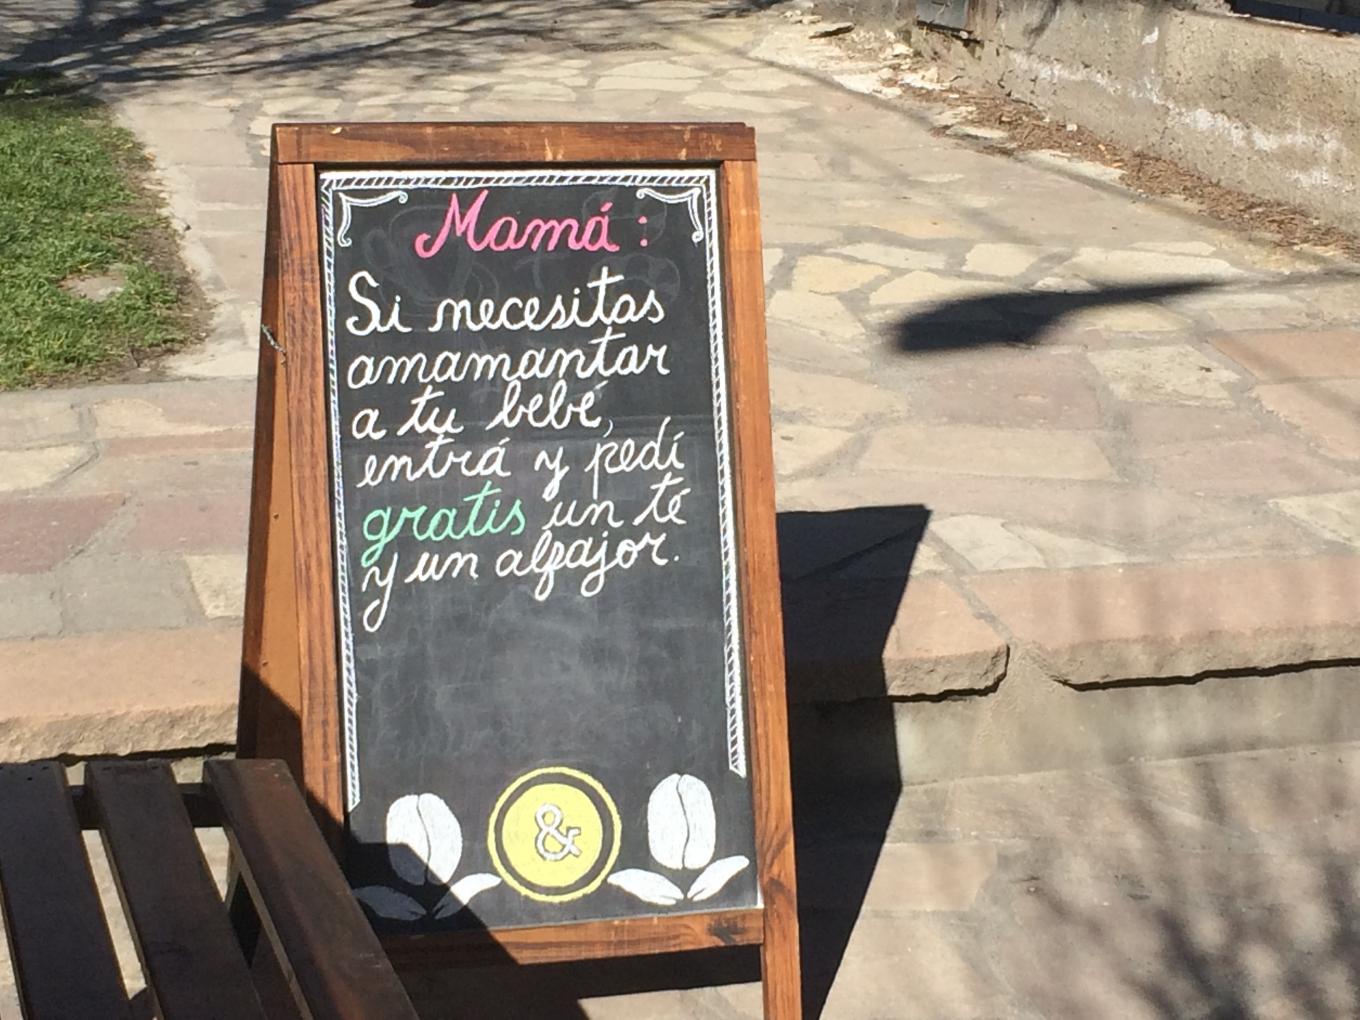 Mamá:
Si necesitas
amamantar
a tu bebé,
entrá y pedí
gratis un té
y un alfajor.
&